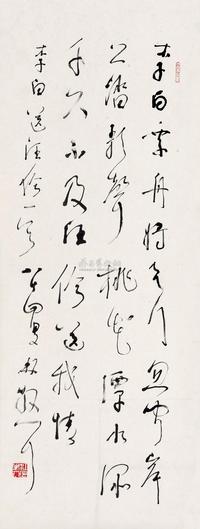 李白乘舟將欲行忽聞岸
上踏歌聲桃花潭水深
千尺不及汪倫送我情
李白送汪倫一首 叟林散耳